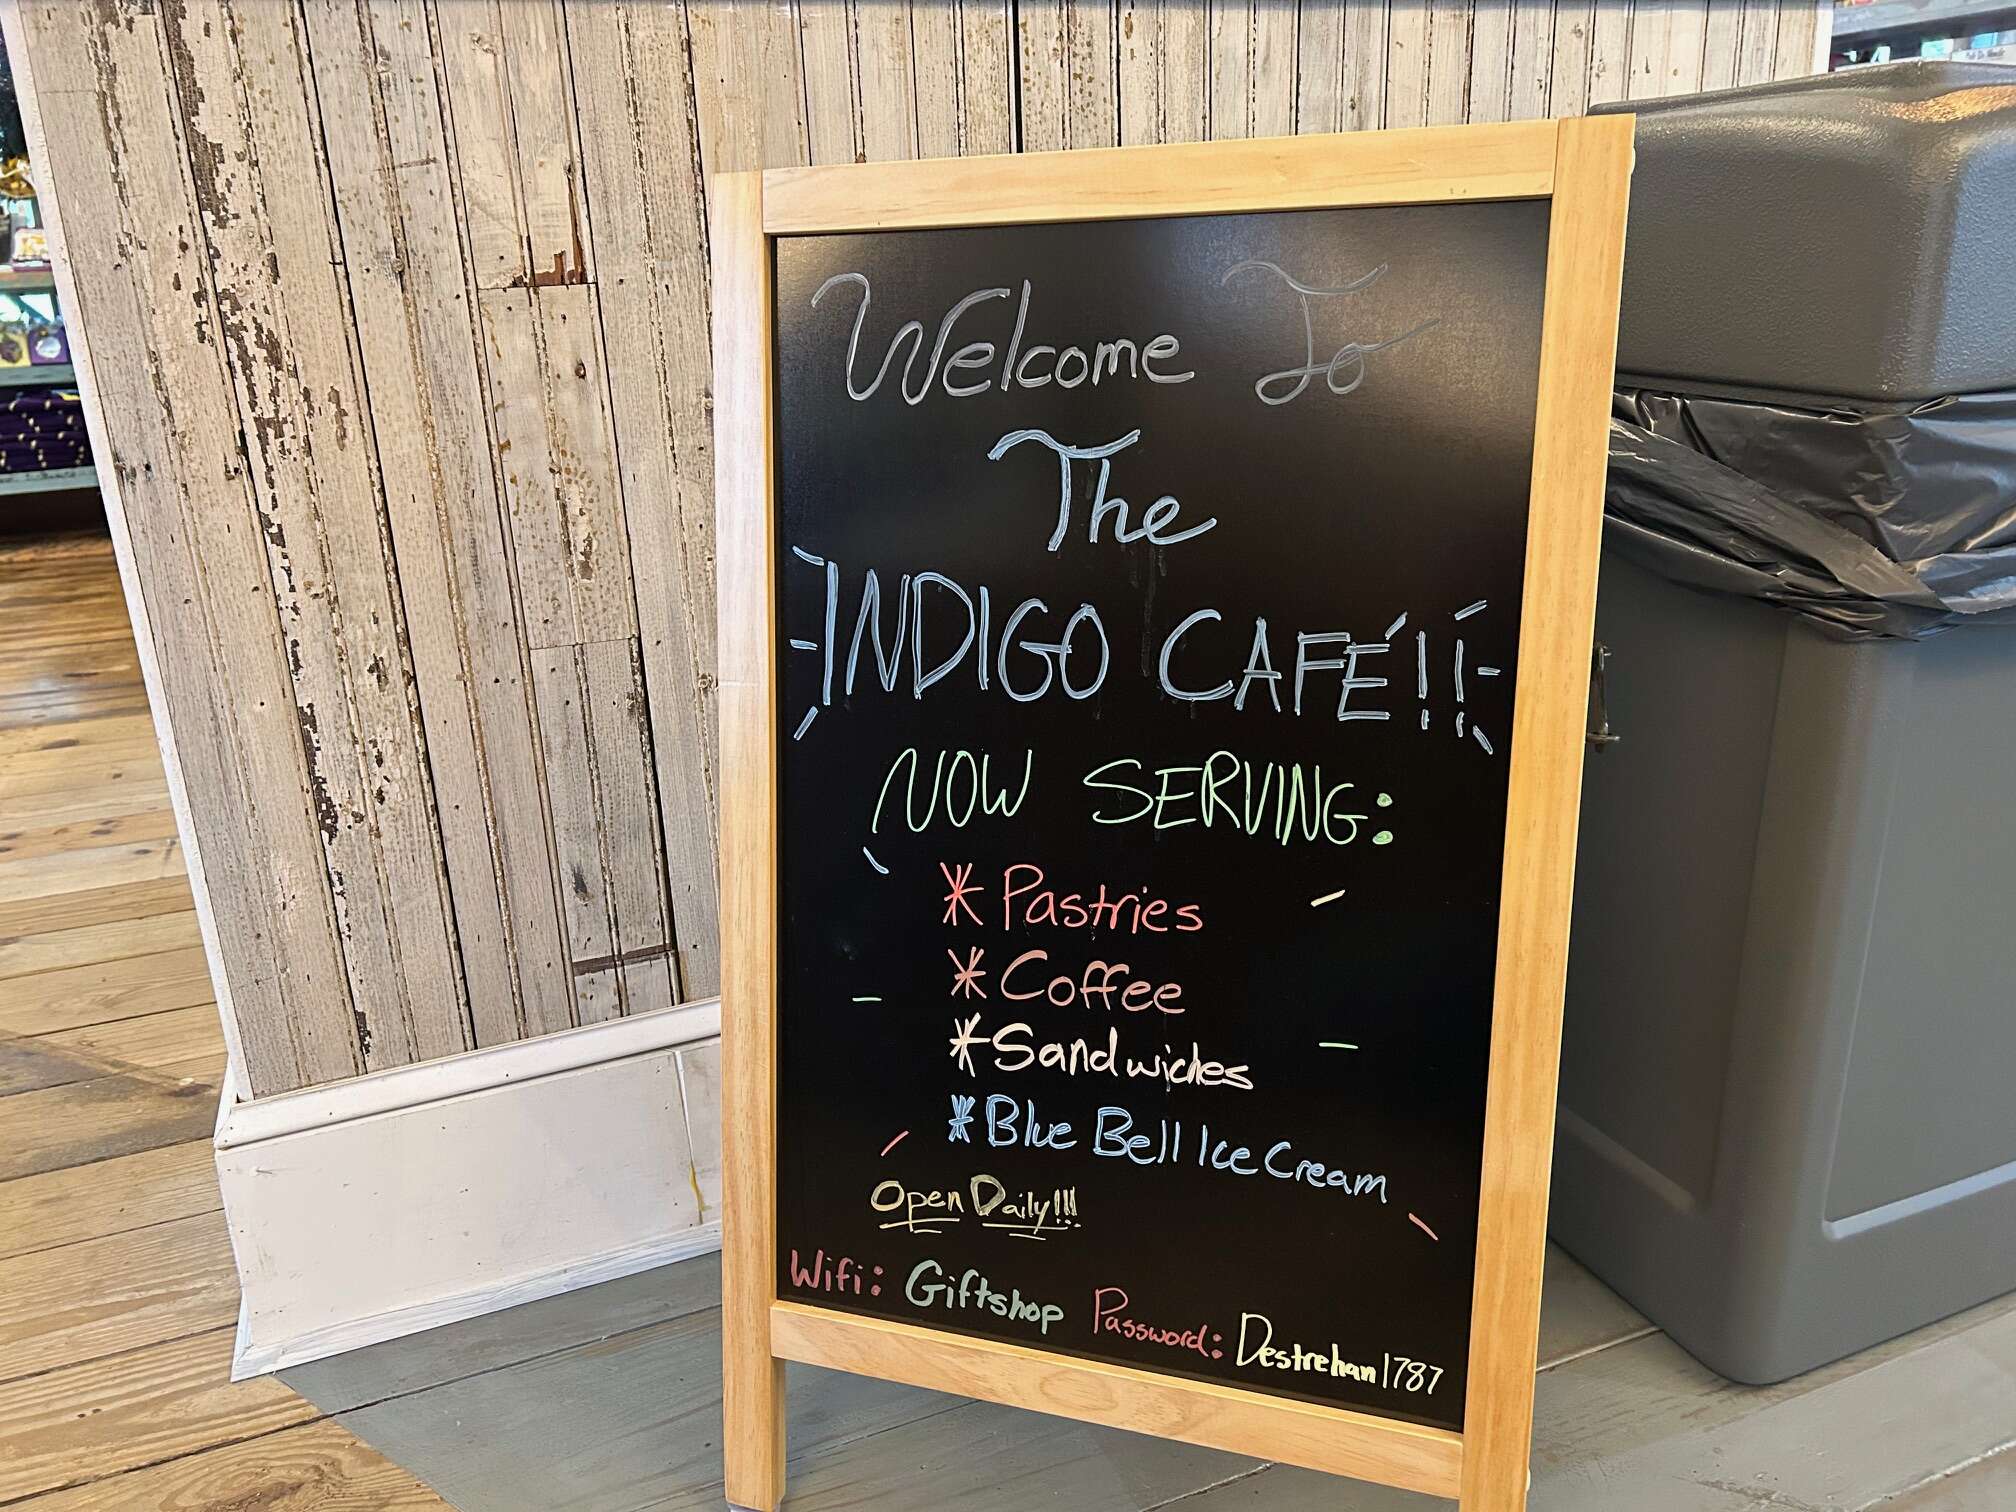 Welcome To
The
INDIGO CAFÉ!!
NOW SERVING:
* Pastries
* Coffee
* Sandwiches
* Blue Bell Ice Cream
Open Daily!!!
Wifi: Giftshop Password: Destrehan1787